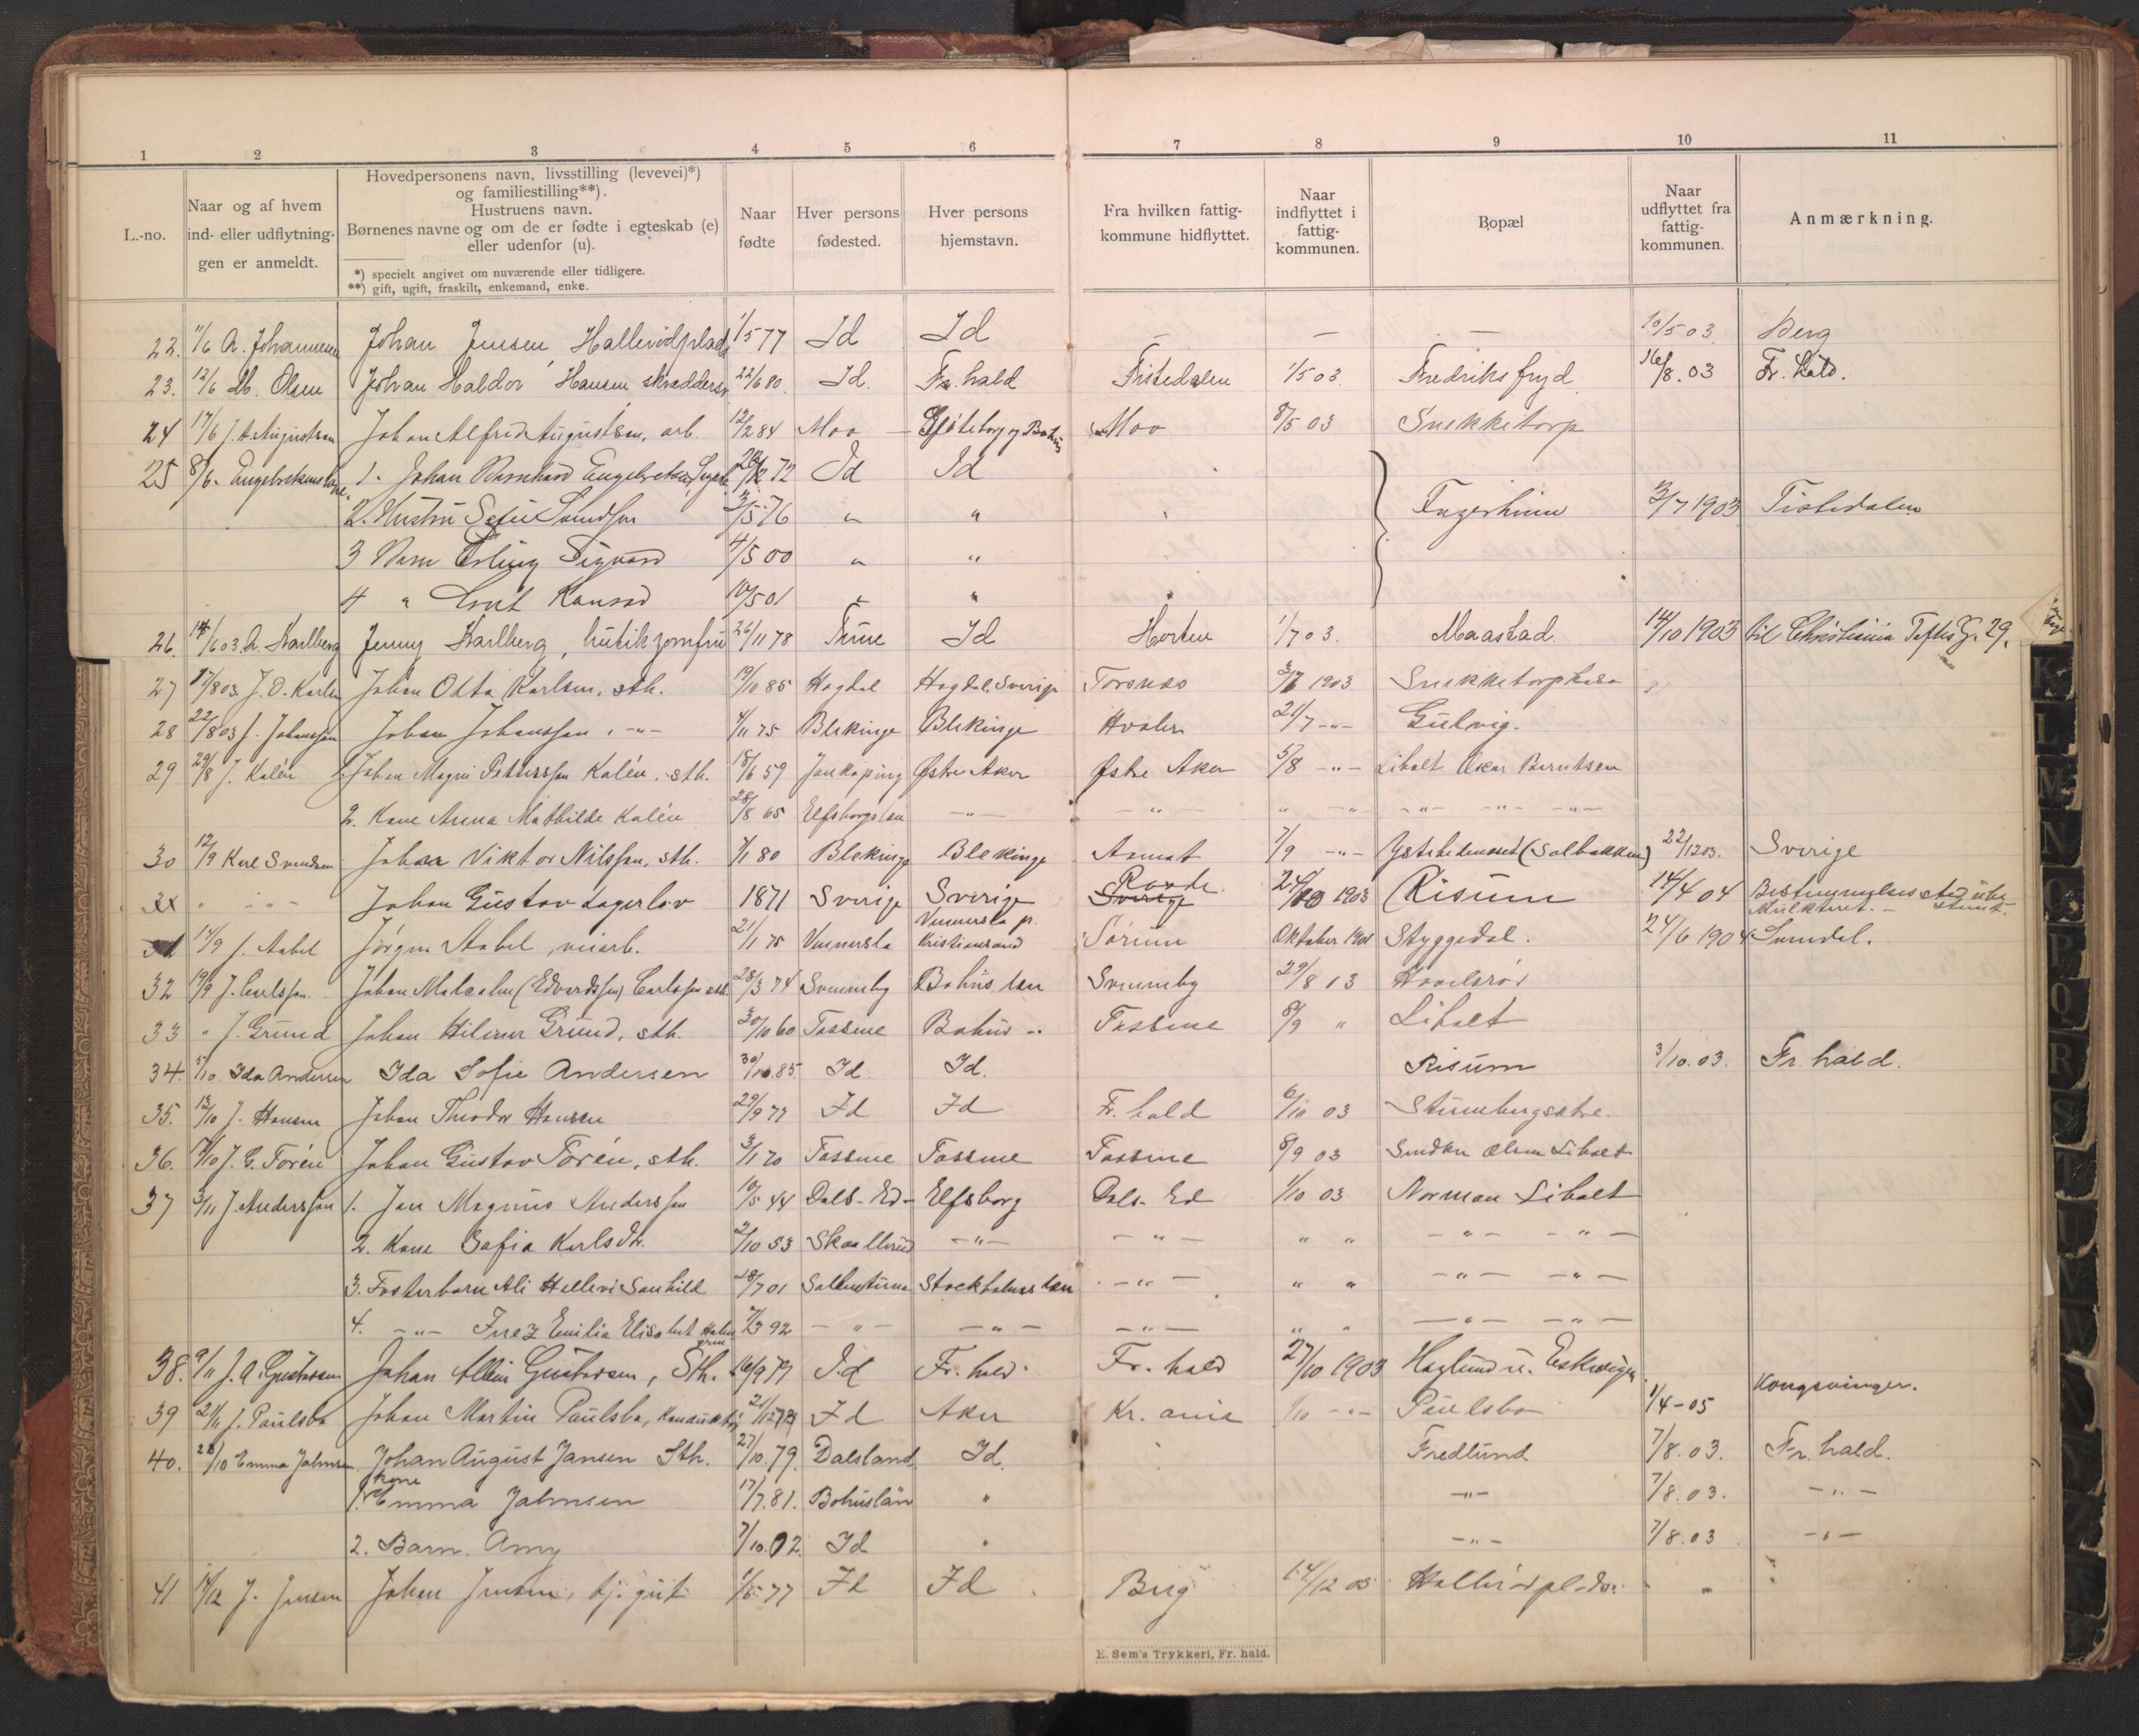 1 2 3 4 5 6 7 8 9 10 11
L.-no.
Naar og af hvem ind- eller udflytningen er anmeldt.
Hovedpersonens navn, livsstilling (levevei)*)
og familiestilling**).
Hustruens navn.
Børnenes navne og om de er fødte i egteskab (e)
eller udenfor (u).
*) specielt angivet om nuværende eller tidligere.
**) gift, ugift, fraskilt, enkemand, enke.
Naar fødte
Hver persons fødested.
Hver persons hjemstavn.
Fra hvilken fattigkommune hidflyttet.
Naar indflyttet i fattigkommunen.
Bopæl
Naar udflyttet fra fattigkommunen.
Anmærkning.
22. 11/6 A. Johannesen Johan Jensen, Hallerødplads 1/5 77 Id Id — — — 10/5 03. Berg
23. 12/6 Olsen Johan Haldor Hansen skrædders. 22/6 80. Id. Fr. hald Tistedalen 1/5 03 Fredriksfryd 16/8. 03 Fr. hald.
24 17/6 J. A. Augustsen Johan Alfred Augustsen, arb. 12/2 84 Moo Gøteborg og Bohus Moo 8/5 03 Snekketorp
25 8/6 1. Johan Bernhard Engebretsen 72 Id Id
2. Hustru Svendsen 3/5 76 " " 3/7 1903 Tistedalen
3 Barn Erling Sigvard 4/5 00 " "
4 " Konrad 10/5 01 " "
26. 14/6 03. A. Karlberg Jenny Karlberg, butikjomfru 26/11 78 Tune Id Horten 1/7 03. Maastad. 14/10 1903 til Christiania Toftes G. 29.
27 17/8 03 J. O. Karlsen Johan Otto Karlsen, sth. 19/10 85 Hogdal Hogdal, Sverige Torsnæs 1903 Snekketorphaven
28 22/8 03 J. Johansson Johan Johansson, -"- 4/11 75 Blekinge Blekinge Hvaler 21/7 -"- Gulvig.
29 29/8 J. Kalén 1. Johan Magni Pettersson Kalén, sth. 18/6 59 Jønkøping Østre Aker Østre Aker 5/8 -"- Libølt Oskar Berntsen
2. Kone Anna Mathilde Kalén 28/8 65 Elfsborgs län -"- -"- " -"- -"- -"- -"-
30 12/9 Karl Svendsen Johan Viktor Nilsson, sth. 7/1 80 Blekinge Blekinge Asmat 7/9 -"- (Solbakken) 22/12 03. Sverige
" - " - Johan Gustav Lagerløv 1871 Sverige Sverige Raade 1903 Risum 14/4 04 Bestemmelsessted ube-
Mulkteret. - stemt.
31 14/9 J. Aabel Jørgen Aabel, veiarb. 21/1 75 Vennersla Vennersla p. Kristiansand Sørum Oktober 1901 Styggedal. 24/6 1904 Surndal.
32 19/9 J. Carlsson Johan Malcolm (Edvardssen) Carlsson sth. 28/3 74 Svenneby Bohus län Svenneby 29/8 03 Hovelsrød
33 " J. Grund Johan Hilmer Grund, sth. 30/10 60 Tossene Bohus -"- Tossene 8/9 " Libølt
34. 5/10. Ida Andersen Ida Sofie Andersen 30/10. 85. Id Id. Risum 3/10. 03. Fr. hald.
35. 13/10 J. Hansen Johan Theodor Hansen 29/9 77 Id Id Fr. hald 6/10 03 Stumbergsøtre.
36. J. G. Torén Johan Gustav Torén, sth. 3/1 70 Tossene Tossene Tossene 8/9 03 Snedker Olsen Libølt
37 3/11 J. Andersson 1. Jan Magnus Andersson 10/5 44 Dals-Ed Elfsborg Dals-Ed 1/10 03 Norman Libølt
2. Kone Sofia Karlsdtr. 2/10 53 Skaallerud -"- -"- " " -"- -"-
3. Fosterbarn Ali Hellevi Sanhild 28/7 01 Sollentuna Stockholms län -"- " " -"- -"-
4. -"- Inez Emilia Elisabet 7/3 92 -"- -"- -"- " " -"- -"-
38. 9/11 J. A. Gustavsen Johan Albin Gustavsen, Sth. 16/9 79 Id Fr. hald. Fr. hald 27/10 1903 Haglund u. Eskevigen
39 21/11 J. Paulsbo Johan Martin Paulsbo, Konduktør Id Aker Kr.ania 1/10 -"- Paulsbo 1/4-05 Kongsvinger.
40. 28/10 Emma Johnsen Johan August Jansen Sth. 27/10. 79. Dalsland Id. Fredlund 7/8. 03. Fr. hald.
1. Kone Emma Johnsen 17/7. 81. Bohuslän " -"- 7/8. 03. -"-
2. Barn. Amy 7/10. 02. Id " -"- 7/8. 03 -"-
41 14/12 J. Jensen Johan Jensen, tj. gut 1/5 77 Id Id Berg 14/12 03 Hallerødplads. "
E. Sem's Trykkeri, Fr. hald.
K L M N O P Q R S T U V W